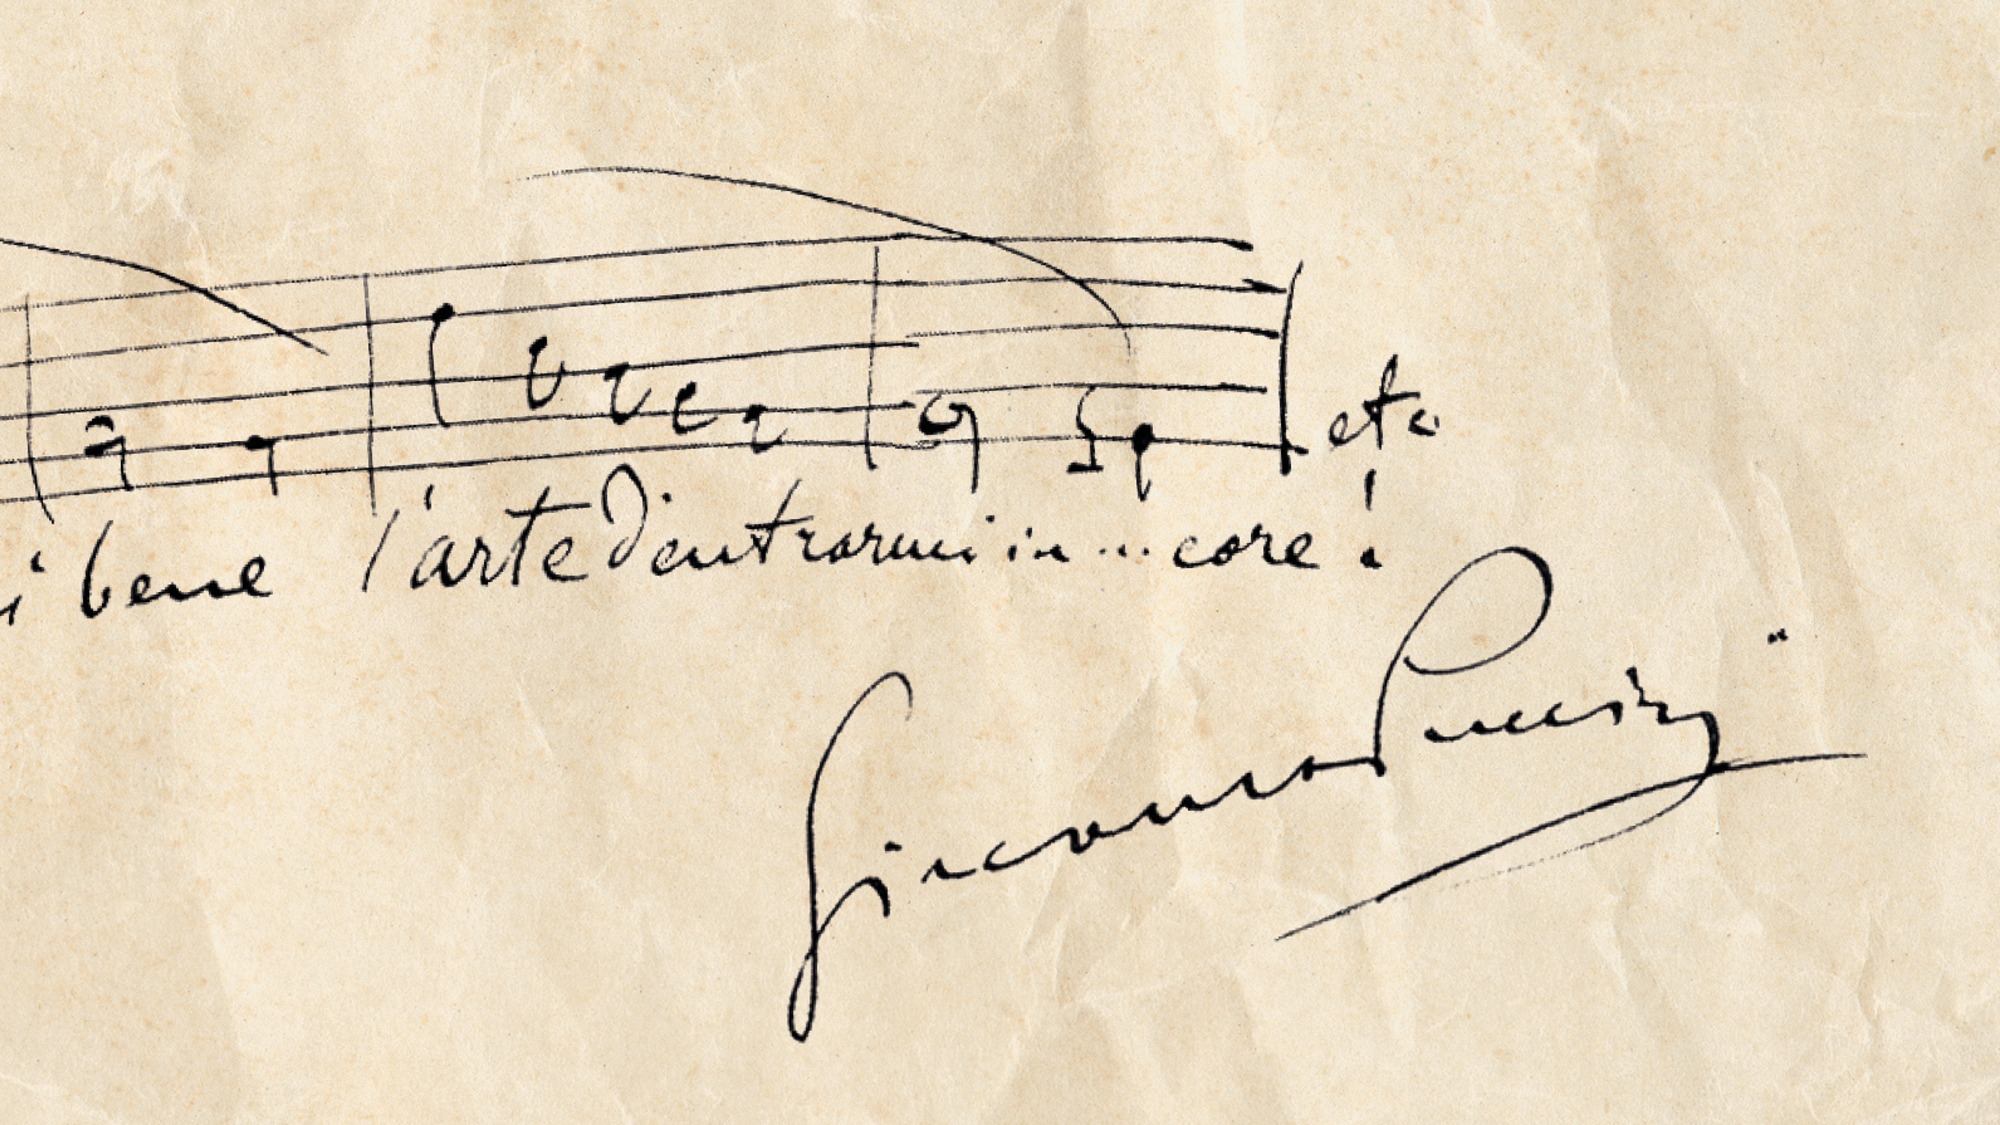 etc
i bene l'arte d'entrarmi in ... core!
Giacomo Puccini